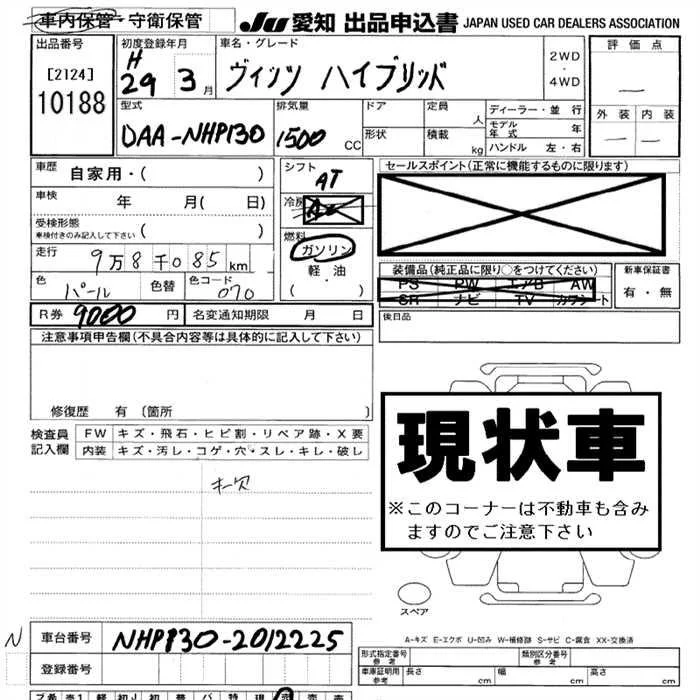 車内保管・守衛保管 JU 愛知 出品申込書 JAPAN USED CAR DEALERS ASSOCIATION
出品番号 初度登録年月 車名・グレード 2WD・4WD 評価点
[2124] H 29 3月 ヴィッツ ハイブリッド
10188
型式 排気量 ドア 定員 人 ディーラー・並行 外装 内装
DAA-NHP130 1500 CC 形状 積載 kg モデル年式 年
ハンドル 左・右
車歴 自家用・( ) シフト AT セールスポイント(正常に機能するものに限ります)
車検 年 月( 日) 冷房
受検形態 ( )
車検付きのみ記入して下さい
燃料 ガソリン
走行 9万8千085km 軽油
色 パール 色替 色コード 070 ( ・ )
装備品(純正品に限り○をつけてください) 新車保証書
PS PW エアB AW 有・無
SR ナビ TV カワシート
R券 9000円 名変通知期限 月 日 後日品
注意事項申告欄(不具合内容等は具体的に記入して下さい)
修復歴 有 〔箇所 〕
現状車
※このコーナーは不動車も含み
ますのでご注意下さい
検査員 FW キズ・飛石・ヒビ割・リペア跡・X要
記入欄 内装 キズ・汚レ・コゲ・穴・スレ・キレ・破レ
キー欠
スペア
A-キズ E-エクボ U-凹み W-補修跡 S-サビ C-腐食 XX-交換済
N 車台番号 NHP130-2012225
登録番号
形式指定番号 参考 類別区分番号 参考
車庫証明用 参考 長さ 幅 高さ